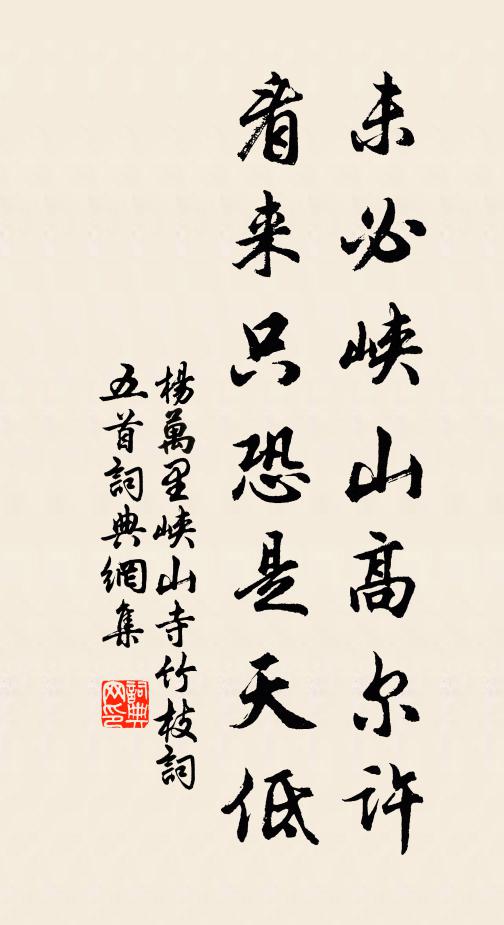 未必峡山高尔许
看来只恐是天低
楊萬里峡山寺竹枝詞
五首詞典網集
詞典
网印